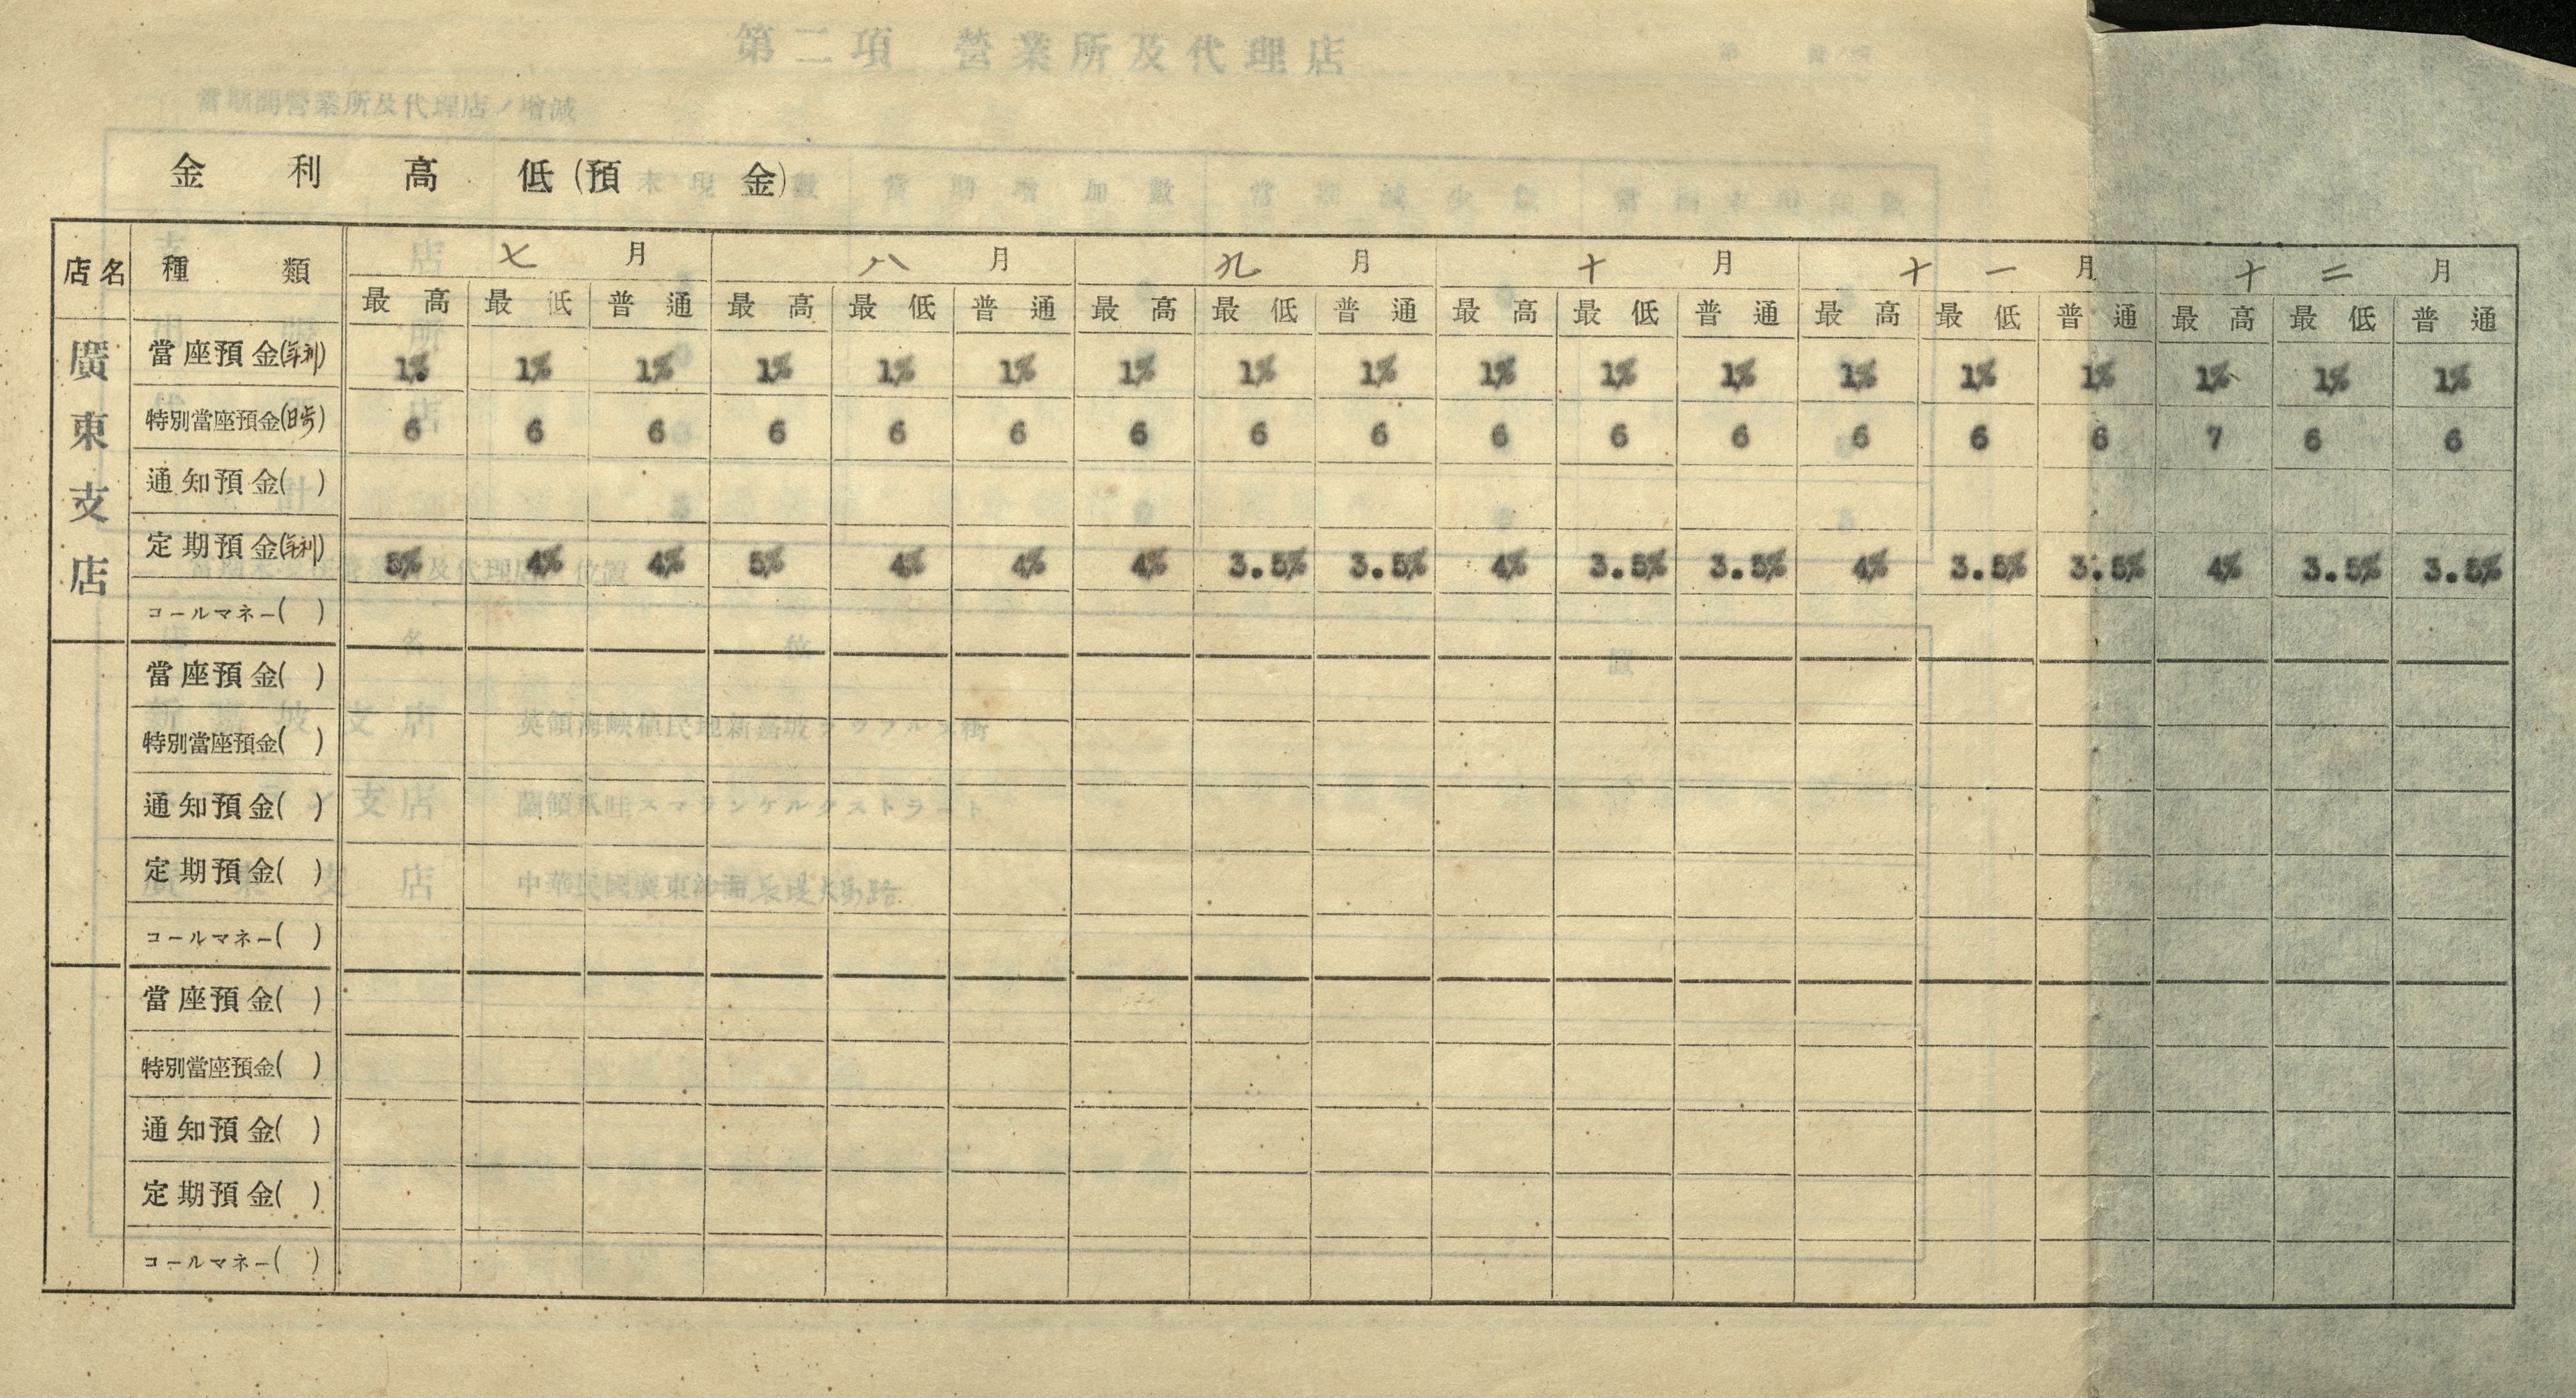 金利高低(預金)
店名 種類 七月 八月 九月 十月 十一月 十二月
最高 最低 普通 最高 最低 普通 最高 最低 普通 最高 最低 普通 最高 最低 普通 最高 最低 普通
廣東支店
當座預金(年利) 1% 1% 1% 1% 1% 1% 1% 1% 1% 1% 1% 1% 1% 1% 1% 1% 1% 1%
特別當座預金(日歩) 6 6 6 6 6 6 6 6 6 6 6 6 6 6 6 7 6 6
通知預金( )
定期預金(年利) 5% 4% 4% 5% 4% 4% 4% 3.5% 3.5% 4% 3.5% 3.5% 4% 3.5% 3.5% 4% 3.5% 3.5%
コールマネー( )
當座預金( )
特別當座預金( )
通知預金( )
定期預金( )
コールマネー( )
當座預金( )
特別當座預金( )
通知預金( )
定期預金( )
コールマネー( )
第二項 營業所及代理店
當期間營業所及代理店ノ增減